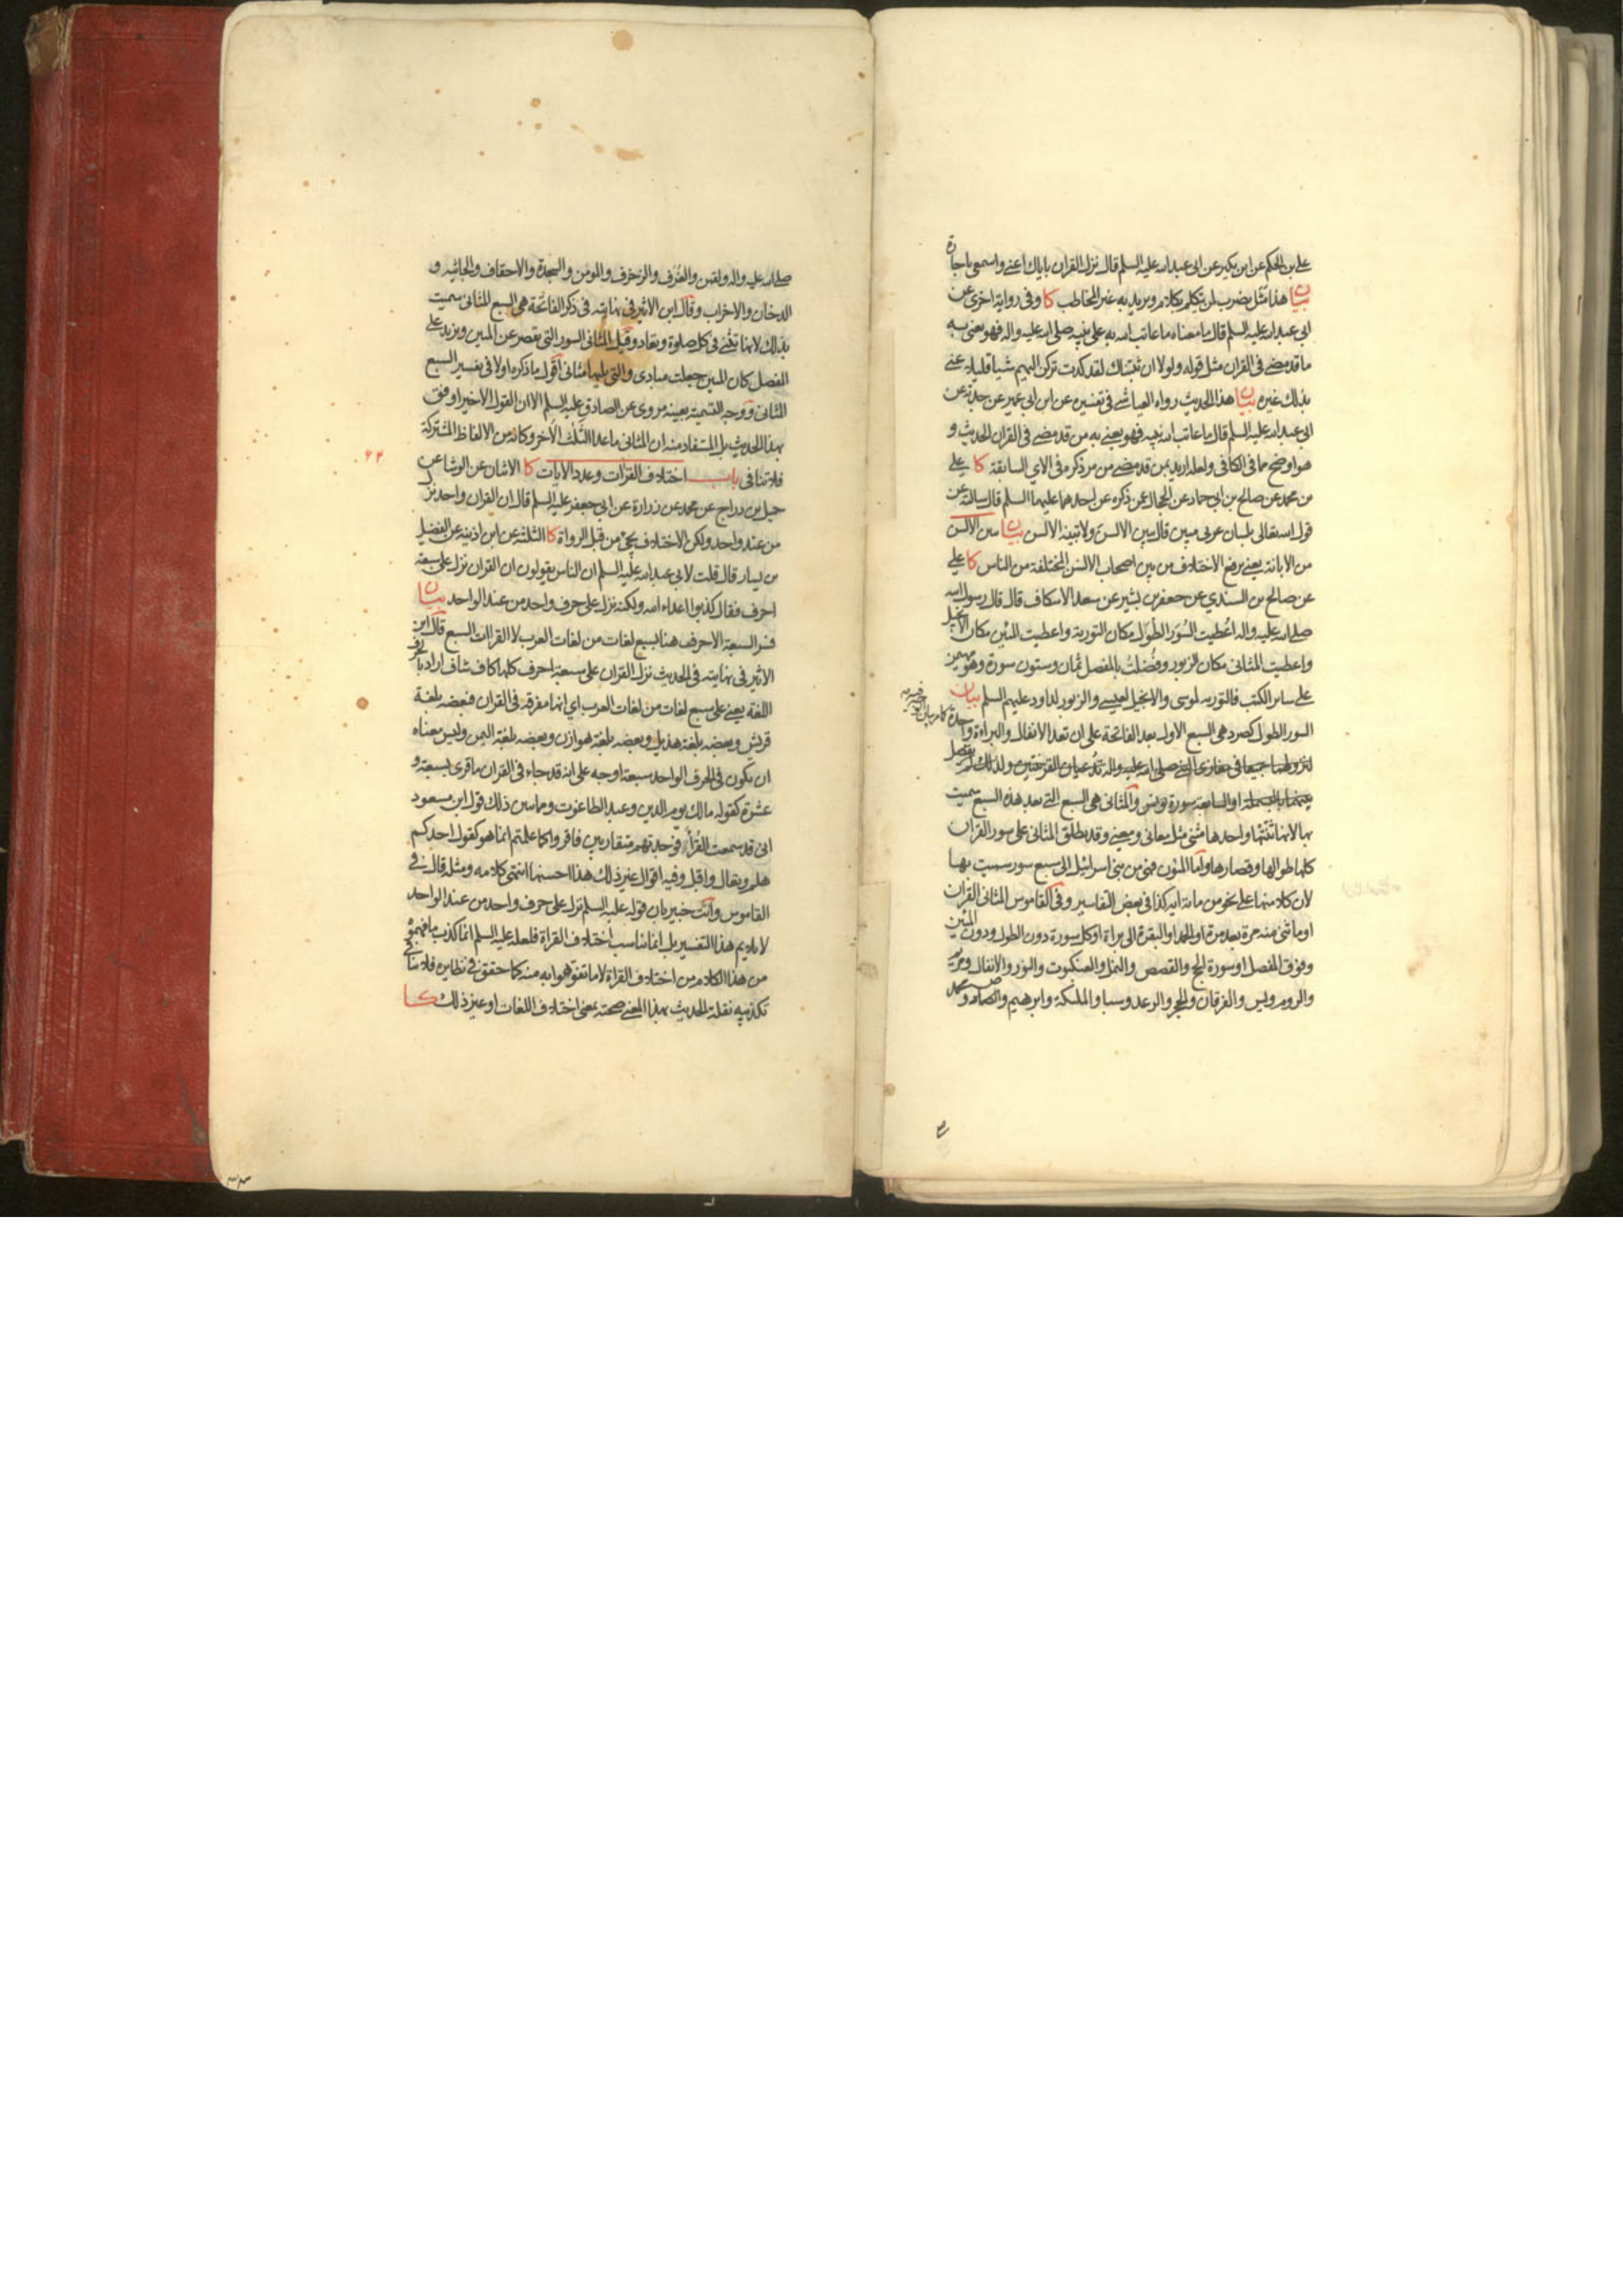 علي بن الحكم عن ابن بكير عن ابى عبد الله عليه السلم قال نزل القران باياك اعني واسمعي يا جارة
بيان هذا مثل يضرب لمن يتكلم بكلام ويريد به غير المخاطب كا وفى رواية اخرى عن
ابي عبد الله عليه السلم قال ما معناه ما عاتب الله به على نبيه صلى الله عليه واله فهو يعنى به
ما قد مضى فى القران مثل قوله ولولا ان ثبتناك لقد كدت تركن اليهم شيا قليلا عنى
بذلك غيره بيان هذا الحديث رواه العياشي فى تفسيره عن ابن ابى عمير عن حدثه عن
ابى عبد الله عليه السلم قال ما عاتب الله نبيه فهو يعني به من قد مضى فى القران الحديث و
هو اوضح مما فى الكافى ولعله اريد بمن قد مضى من مر ذكره فى الاي السابقة كا علي
بن محمد عن صالح بن ابي حماد عن الحجال عن ذكره عن احدهما عليهما السلم قال سالته عن
قول الله تعالى بلسان عربى مبين قال يبين الالسن ولا تبينه الالسن بيان يبين الالسن
من الابانة يعني يرفع الاختلاف من بين اصحاب الالسن المختلفة من الناس كا علي
عن صالح بن السندي عن جعفر بن بشير عن سعد الاسكاف قال قال رسول الله
صلى الله عليه واله اعطيت السور الطول مكان التورية واعطيت المئين مكان الانجيل
واعطيت المثانى مكان الزبور وفضلت بالمفصل ثمان وستون سورة وهو مهيمن
على سائر الكتب فالتوريه لموسى والانجيل لعيسى والزبور لداود عليهم السلم بيان
السور الطول كصرد هى السبع الاول بعد الفاتحة على ان تعد الانفال والبراءة واحدة
لنزولهما جميعا فى مغازى النبي صلى الله عليه واله وتدعيان القرينتين ولذلك لم يفصل
بينهما بالبسملة او السابعة سورة يونس والمثانى هى السبع التي بعد هذه السبع سميت
بها لانها ثنتها واحدها مثنى مثل معانى ومعنى وقد يطلق المثانى على سور القران
كلها طوالها وقصارها واما المئون فهى من بنى اسرائيل الى سبع سور سميت بها
لان كلا منها على نحو من مائة ايه كذا فى بعض التفاسير وفى القاموس المثانى القران
او ما ثنى منه مرة بعد مرة او الحمد او البقرة الى براءة او كل سورة دون الطول ودون المئين
وفوق المفصل او سورة الحج والقصص والنمل والعنكبوت والنور والانفال ومريم
والروم ويس والفرقان والحجر والرعد وسبا والملئكة وابرهيم وص ومحمد
صلى الله عليه واله ولقمن والغرف والزخرف والمومن والسجدة والاحقاف والجاثيه و
الدخان والاحزاب وقال ابن الاثير فى نهايته فى ذكر الفاتحة هى السبع المثانى سميت
بذلك لانها تثنى فى كل صلوة وتعاد وقيل المثانى السور التى تقصر عن المئين وتزيد على
المفصل كان المئين جعلت مبادى والتى يليها مثانى اقول ما ذكره اولا فى تفسير السبع
المثانى ووجه التسمية بعينه مروى عن الصادق عليه السلم الا ان القول الاخير اوفق
بهذا الحديث بل المستفاد منه ان المثانى ما عدا الثلث الاخر وكانه من الالفاظ المشتركة
فلا تنافى باب اختلاف القرات وعدد الايات كا الاثنان عن الوشا عن
٢٢
جميل بن دراج عن محمد عن زرارة عن ابي جعفر عليه السلم قال ان القران واحد نزل
من عند واحد ولكن الاختلاف يجيء من قبل الرواة كا الثلثة عن ابن اذينه عن الفضيل
بن يسار قال قلت لابى عبد الله عليه السلم ان الناس يقولون ان القران نزل على سبعة
احرف فقال كذبوا اعداء الله ولكنه نزل على حرف واحد من عند الواحد بيان
فسر السبعة الاحرف هنا بسبع لغات من لغات العرب لا القراات السبع قال ابن
الاثير فى نهايته فى الحديث نزل القران على سبعة احرف كلها كاف شاف اراد بالحرف
اللغة يعني على سبع لغات من لغات العرب اي انها مفرقة فى القران فبعضه بلغة
قريش وبعضه بلغة هذيل وبعضه بلغة هوازن وبعضه بلغة اليمن وليس معناه
ان يكون فى الحرف الواحد سبعة اوجه على انه قد جاء فى القران ما قرى بسبعة و
عشرة كقوله مالك يوم الدين وعبد الطاغوت ومما يبين ذلك قول ابن مسعود
انى قد سمعت القراء فوجدتهم متقاربين فاقروا كما علمتم انما هو كقول احدكم
هلم وتعال واقبل وفيه اقوال غير ذلك هذا احسنها انتهى كلامه ومثله قال في
القاموس وانت خبير بان قوله عليه السلم نزل على حرف واحد من عند الواحد
لا يلايم هذا التفسير بل انما يناسب اختلاف القراة فلعله عليه السلم انما كذب ما فهموه
من هذا الكلام من اختلاف القراة لا ما تفوهوا به منه كما حقق فى نظايره فلا ينافي
تكذيبه نقلة الحديث بهذا المعنى صحته بمعنى اختلاف اللغات او غير ذلك كا